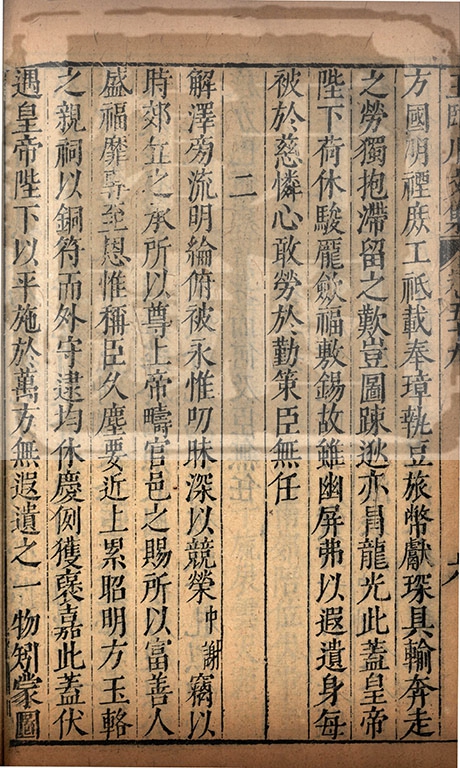 王臨川文集 卷五十九 六
方國明禋庶工祗載奉璋執豆旅幣獻琛具輸奔走
之勞獨抱滯留之歎豈圖踈逖亦冐龍光此蓋皇帝
陛下荷休駿厖歛福敷錫故雖幽屏弗以遐遺身每
被於慈憐心敢勞於勤策臣無任
二
解澤旁流明綸俯被永惟叨昧深以競榮中謝竊以
時郊丘之承所以尊上帝疇官邑之賜所以富善人
盛福靡專至恩惟稱臣久塵要近上累昭明方玉輅
之親祠以銅符而外守逮均休慶例獲襃嘉此蓋伏
遇皇帝陛下以平施於萬方無遐遺之一物矧蒙圖